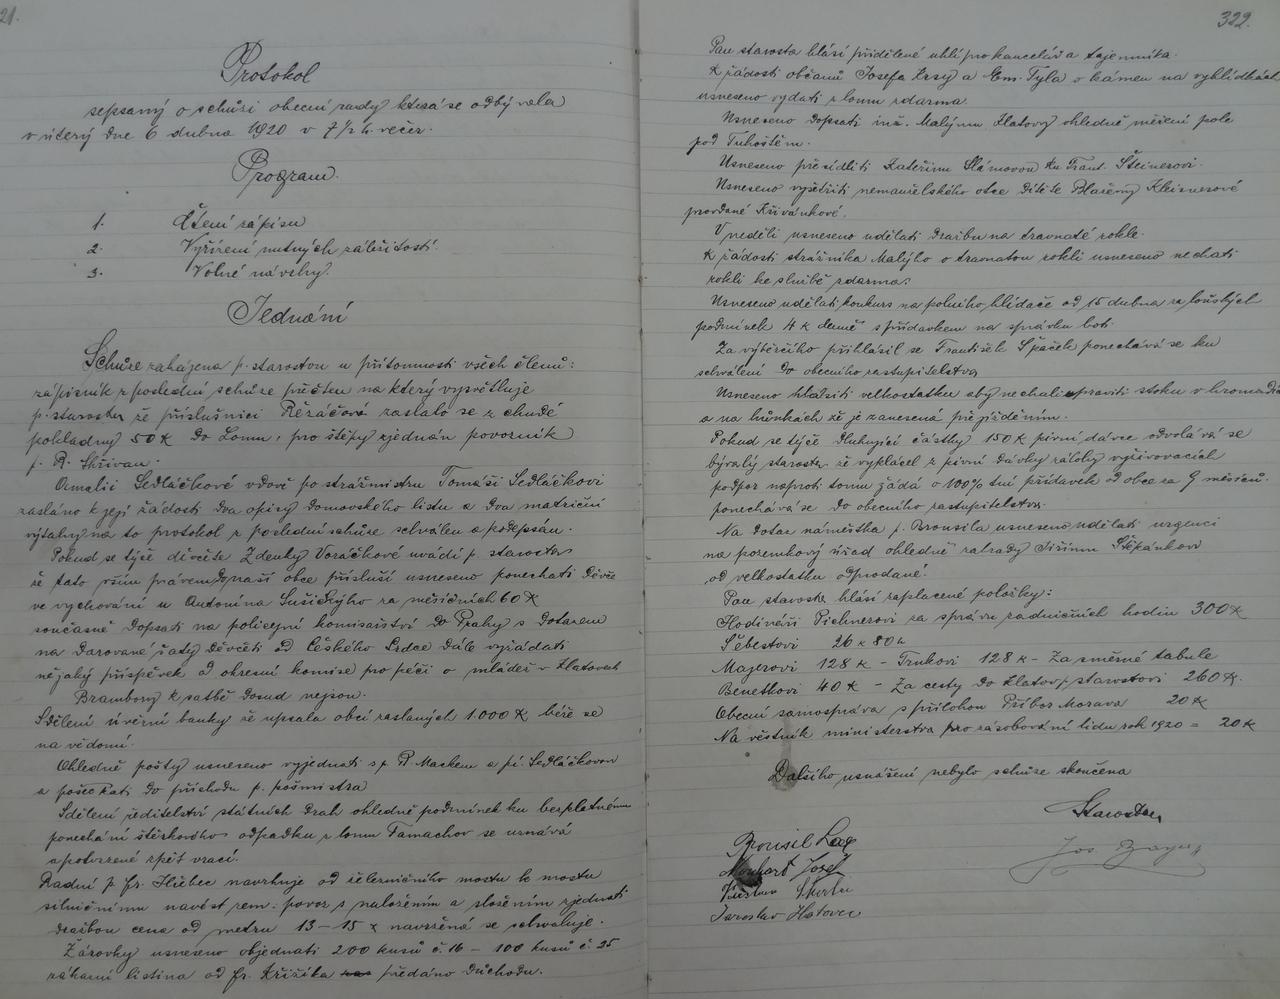 21.
Protokol
sepsaný o schůzi obecní rady která se odbývala
v úterý dne 6 dubna 1920 v 7 1/2 h. večer.
Program.
1. Čtení zápisu
2. Vyřízení nutných záležitostí.
3. Volné návrhy.
Jednání
Schůze zahájena p. starostou u přítomnosti všech členů:
zápisník z poslední schůze přečten na který vysvětluje
p. starosta že příslušnici Řezáčové zaslalo se z chudé
pokladny 50 K do Lomu, pro štěpy zjednán povozník
p. R. Skřivan.
Amalii Sedláčkové vdově po strážmistru Tomáši Sedláčkovi
zasláno k její žádosti dva opisy domovského listu a dva matriční
výtahy na to protokol z poslední schůze schválen a podepsán.
Pokud se týče děvčete Zdenky Voráčkové uvádí p. starosta
že tato vším právem do naší obce přísluší usneseno ponechati děvče
ve vychování u Antonína Sušického za měsíčních 60 K
současně dopsati na policejní komisařství do Prahy s dotazem
na darované šaty děvčeti od Českého Srdce dále vyžádati
nějaký příspěvek od okresní komise pro péči o mládež v Klatovech
Brambory k satbě dosud nejsou.
Sdělení úvěrní banky že upsala obcí zaslaných 1.000 K béře se
na vědomí.
Ohledně pošty usneseno vyjednati s p. R. Mackem a pí. Sedláčkovou
a posečkati do příchodu p. pošmistra
Sdělení ředitelství státních drah ohledně podmínek ku bezplatnému
ponechání štěrkového odpadku z lomu Tamachov se uznává
a potvrzené zpět vrací.
Radní p. Fr. Hlubec navrhuje od železničního mostu k mostu
silničnímu navést zem: povoz s naložením a složením zjednati
dražbou cena od metru 13 – 15 K navržená se schvaluje.
Žárovky usneseno objednati 200 kusů č. 16 – 100 kusů č. 25
zákazní listina od Fr. Křižíka předáno důchodu.
322.
Pan starosta hlásí přidělené uhlí pro kancelář a tajemníka.
K žádosti občanů Josefa Krsy a Em. Tyla o kámen na vyhlídkách
usneseno vydati z lomu zdarma.
Usneseno dopsati inž. Malýmu Klatovy ohledně měření pole
pod Tuhoštěm.
Usneseno přesídliti Kateřinu Slámovou ku Frant. Šteinerovi.
Usneseno vyšetřiti nemanželského otce dítěte Blaženy Kleisnerové
provdané Křivánkové.
V neděli usneseno udělati dražbu na travnaté rokle.
K žádosti strážníka Malýho o travnatou rokli usneseno nechati
rokli ke službě zdarma.
Usneseno udělati konkurs na polního hlídače od 15 dubna za loňských
podmínek 4 K denně s přídavkem na správku bot.
Za výběrčího přihlásil se František Špaček ponechává se ku
schválení do obecního zastupitelstva
Usneseno hlásiti velkostatku aby nechali upraviti stoku v hromadě
a na lučinkách že je zanesená přejížděním.
Pokud se týče dlužující částky 150 K pivní dávce odvolává se
bývalý starosta že vyplácel z pivní dávky zálohy vyživovacích
podpor naproti tomu žádá o 100% tní přídavek od obce za 9 měsíců.
ponechává se do obecního zastupitelstva.
Na dotaz náměstka p. Brousila usneseno udělati urgenci
na pozemkový úřad ohledně zahrady Jiřímu Štěpánkovi
od velkostatku odprodané.
Pan starosta hlásí zaplacené položky:
Hodináři Pichnerovi za správu radničních hodin 300 K
Šebestovi 26 K 80 h
Majerovi 128 K – Trnkovi 128 K – Za směrné tabule
Benetkovi 40 K – Za cesty do Klatov p. starostovi 260 K.
Obecní samospráva s přílohou Příbor Morava 20 K
Na věstník ministerstva pro zásobování lidu rok 1920 = 20 K
Dalšího usnášení nebylo schůze skončena
Starosta
Brousil
Josef
Jaroslav